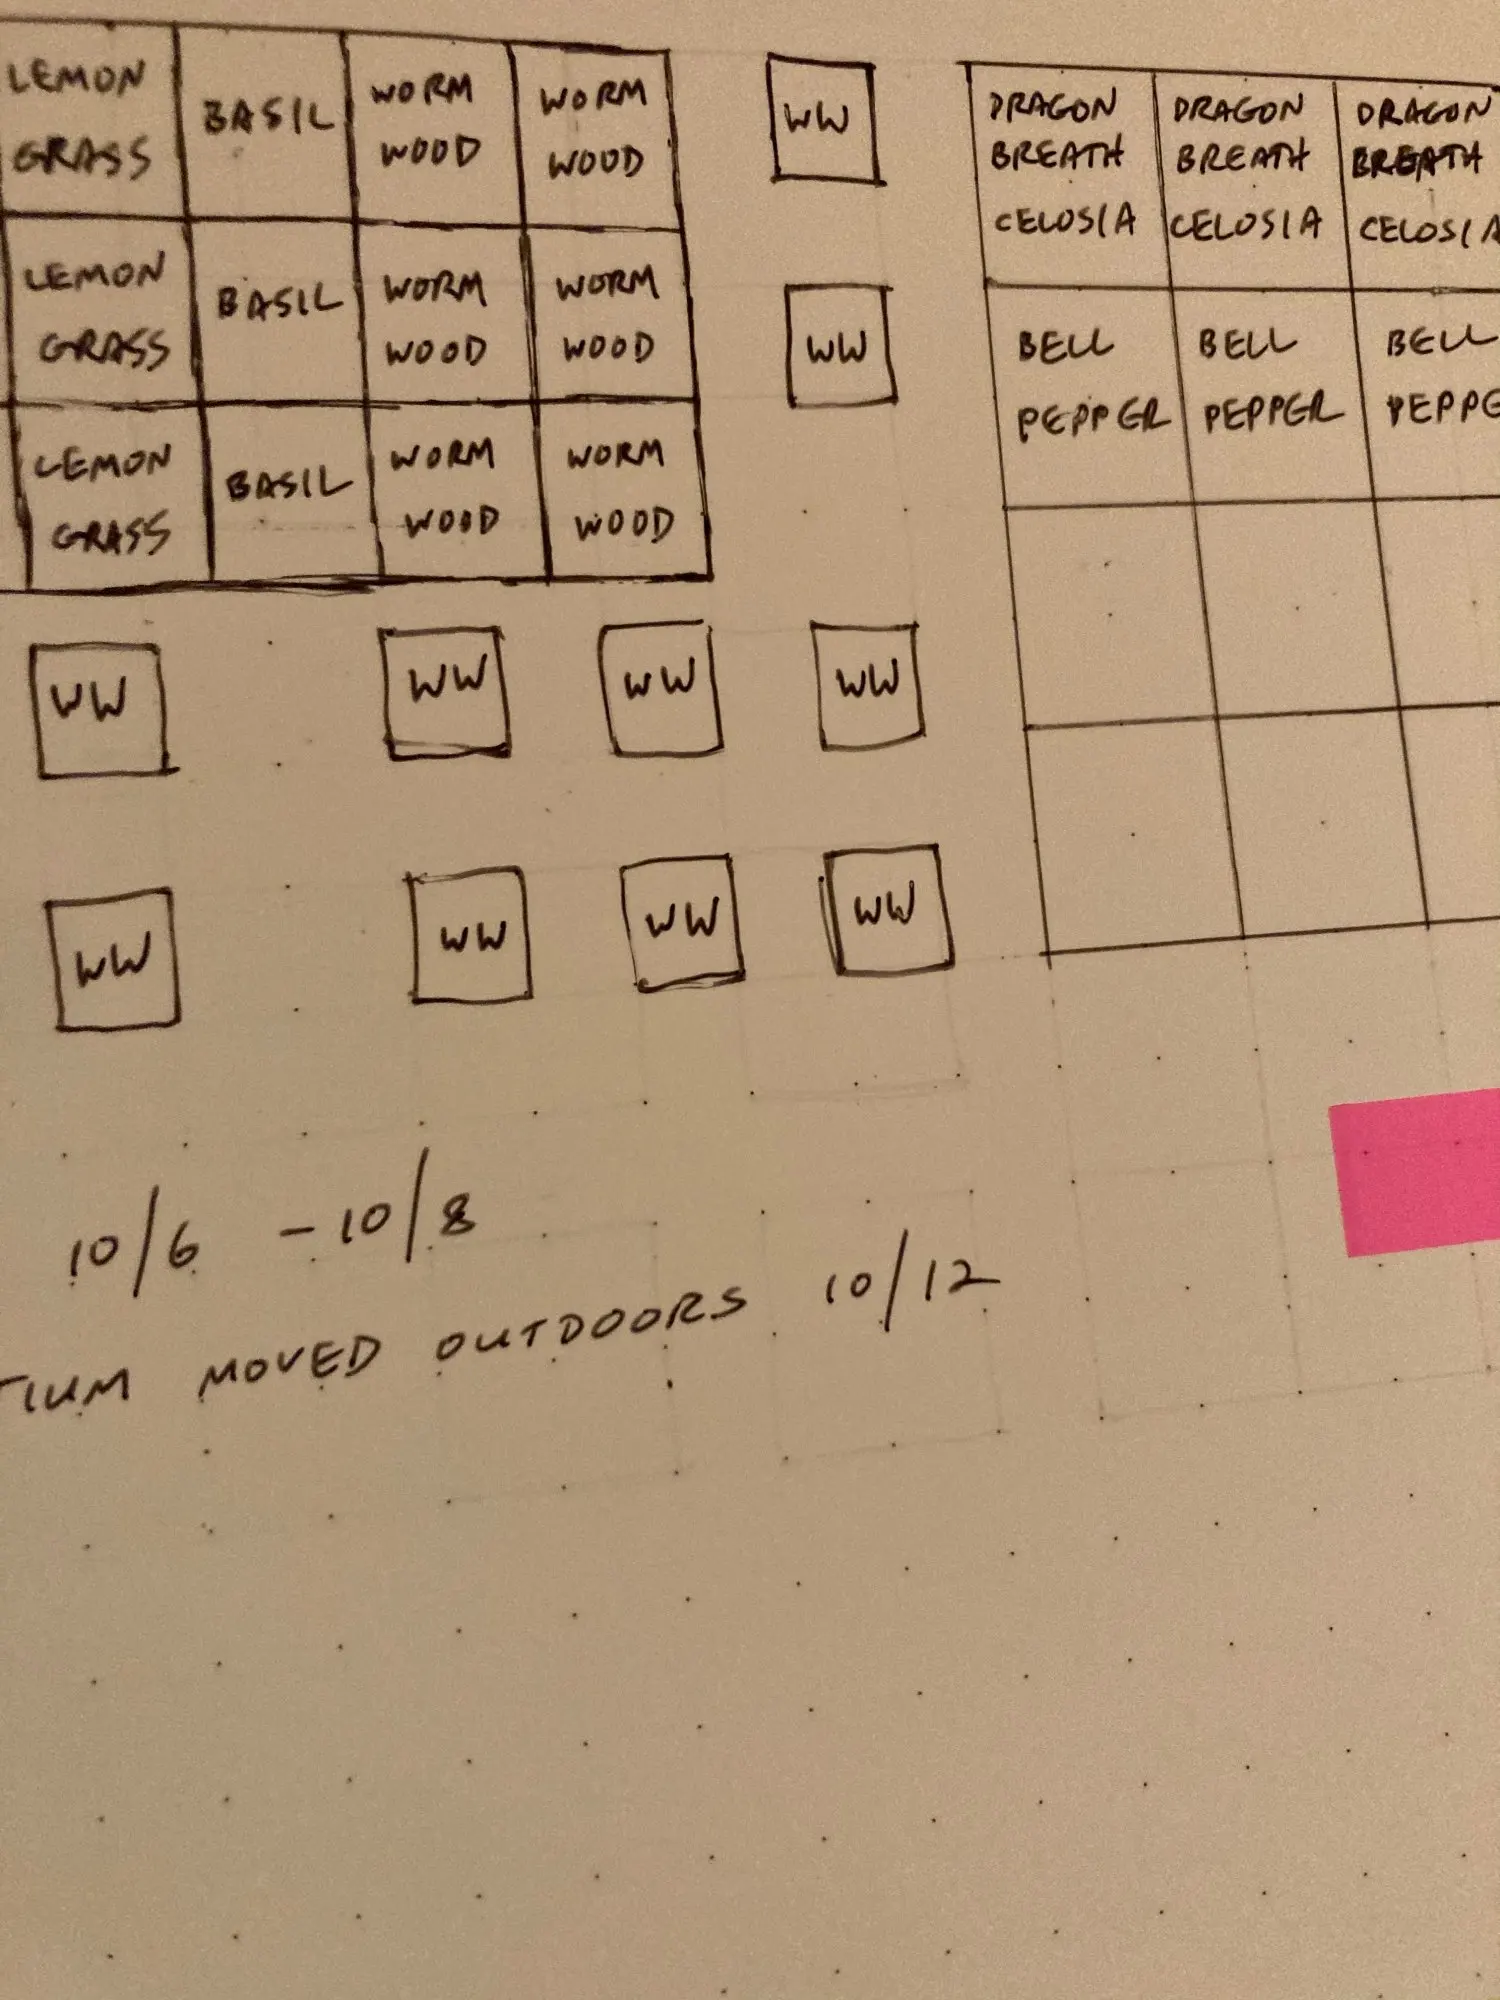 LEMON GRASS BASIL WORM WOOD WORM WOOD
LEMON GRASS BASIL WORM WOOD WORM WOOD
LEMON GRASS BASIL WORM WOOD WORM WOOD
WW
WW
WW WW WW WW
WW WW WW WW
DRAGON BREATH CELOSIA DRAGON BREATH CELOSIA DRAGON BREATH CELOSIA
BELL PEPPER BELL PEPPER BELL PEPPE
10/6 - 10/8
TIUM MOVED OUTDOORS 10/12